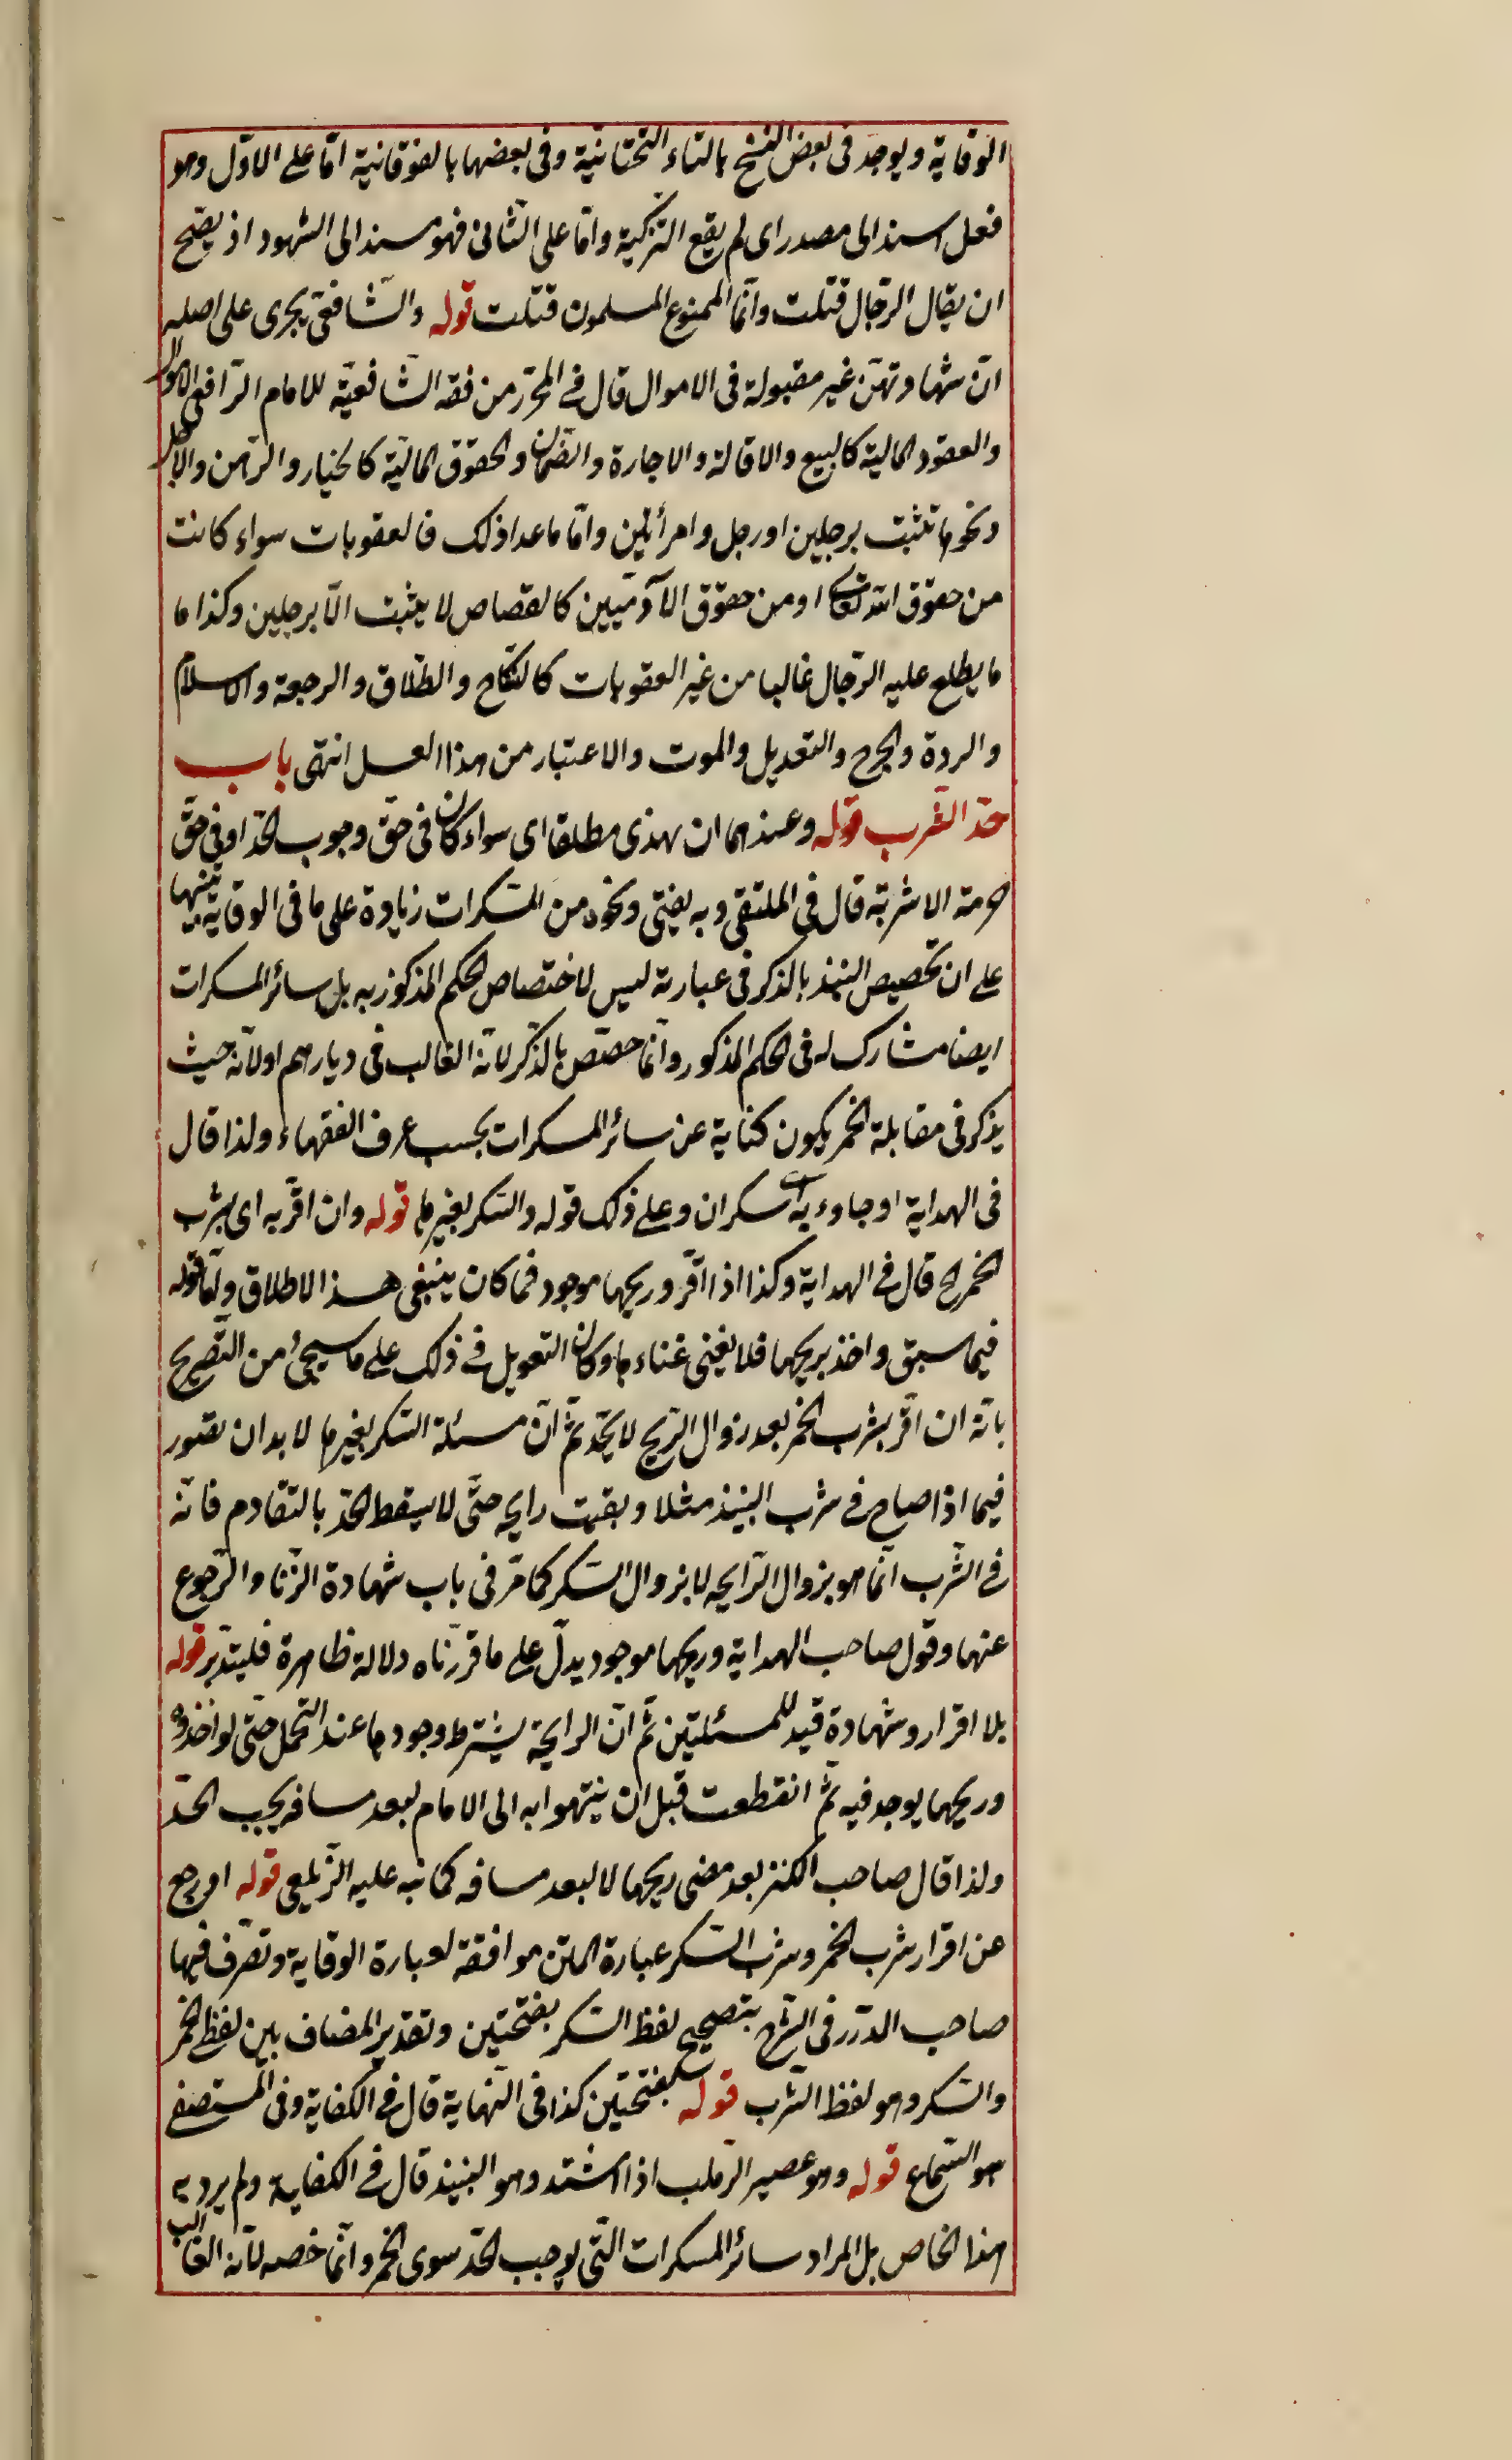 الوقاية ويوجد فى بعض النسخ بالتاء التحتانية وفى بعضها بالفوقانية امّا على الاوّل وهو
فعل اسند الى مصدر اى لم يقع التزكية وامّا على الثانى فهو مسند الى الشهود اذ يصّح
ان يقال الرّجال قتلت وانّما الممنوع المسلمون قتلت قوله والشّافعىّ يجرى على اصله
انّ شهادتهنّ غير مقبولة فى الاموال قال فى المحرّر من فقه الشّافعيّة للامام الرّافعى الاموال
والعقود المالية كالبيع والاقالة والاجارة والضّمان والحقوق الماليّة كالخيار والرّهن والاجل
ونحوها تثبت برجلين او رجل وامرأتين وامّا ماعدا ذلك فالعقوبات سواء كانت
من حقوق الله تعالى او من حقوق الآدميّين كالقصاص لا يثبت الّا برجلين وكذا ما
ما يطلع عليه الرّجال غالبا من غير العقوبات كالنكاح والطّلاق والرجعة والاسلام
والردة والجرح والتعديل والموت والاعتبار من هذا انتهى باب
حدّ الشّرب قوله وعندهما ان يهذى مطلقا اى سواء كان فى حقّ وجوب الحدّ او فى حقّ
حرمة الاشربة قال فى الملتقى وبه يفتى ونحوه من المسكرات زيادة على ما فى الوقاية تنبيها
على ان تخصيص النبيذ بالذكر فى عبارته ليس لاختصاص الحكم المذكور به بل سائر المسكرات
ايضا مشارك له فى الحكم المذكور وانّما خصّص بالذّكر لانّه الغالب فى ديارهم او لانّه حيث
يذكر فى مقابلة الخمر يكون كناية عن سائر المسكرات بحسب عرف الفقهاء ولذا قال
فى الهداية او جاءوا به سكران وعلى ذلك قوله والسّكر بغيرها قوله وان اقرّ به اى بشرب
الخمر الخ قال فى الهداية وكذا اذا اقرّ وريحها موجود فما كان ينبغى هذا الاطلاق وامّا قوله
فيما سبق واخذ بريحها فلا يغنى غناءها وكان التعويل فى ذلك على ما سيجىء من التّصريح
بانّه ان اقرّ بشرب الخمر بعد زوال الرّيح لا يحدّ ثمّ انّ مسئلة السّكر بغيرها لا بد ان تصّور
فيما اذا صاح فى شرب النبيذ مثلا وبقيت رايحه حتّى لا يسقط الحدّ بالتقادم فانّه
فى الشّرب انّما هو بزوال الرّايحه لا بزوال السّكر كما مرّ فى باب شهادة الزّنا والرّجوع
عنها وقول صاحب الهداية وريحها موجود يدلّ على ما قرّرناه دلالة ظاهرة فليتدبّر قوله
بلا اقرار وشهادة قيد للمسئلتين ثمّ انّ الرايحة يشترط وجودها عند التحمل حتّى لو اخذوه
وريحها يوجد فيه ثمّ انقطعت قبل ان ينتهوا به الى الامام لبعد مسافه يجب الحدّ
ولذا قال صاحب الكنز بعد مضى ريحها لا لبعد مسافه كما نبه عليه الزّيلعى قوله او رجع
عن اقرار شرب الخمر وشرب السّكر عبارة المتن موافقة لعبارة الوقاية وتصّرف فيها
صاحب الدّرر فى الشّرح بتصحيح لفظ السّكر بفتحتين وتقدير المضاف بين لفظ الخمر
والسّكر وهو لفظ الشّرب قوله بفتحتين كذا فى النّهاية قال فى الكفاية وفى المستصفى
هو السّماع قوله وهو عصير الرّطب اذا اشتد وهو النبيذ قال فى الكفاية ولم يرد به
هذا الخاص بل المراد سائر المسكرات الّتى يوجب الحدّ سوى الخمر وانّما خصه لانّه الغالب